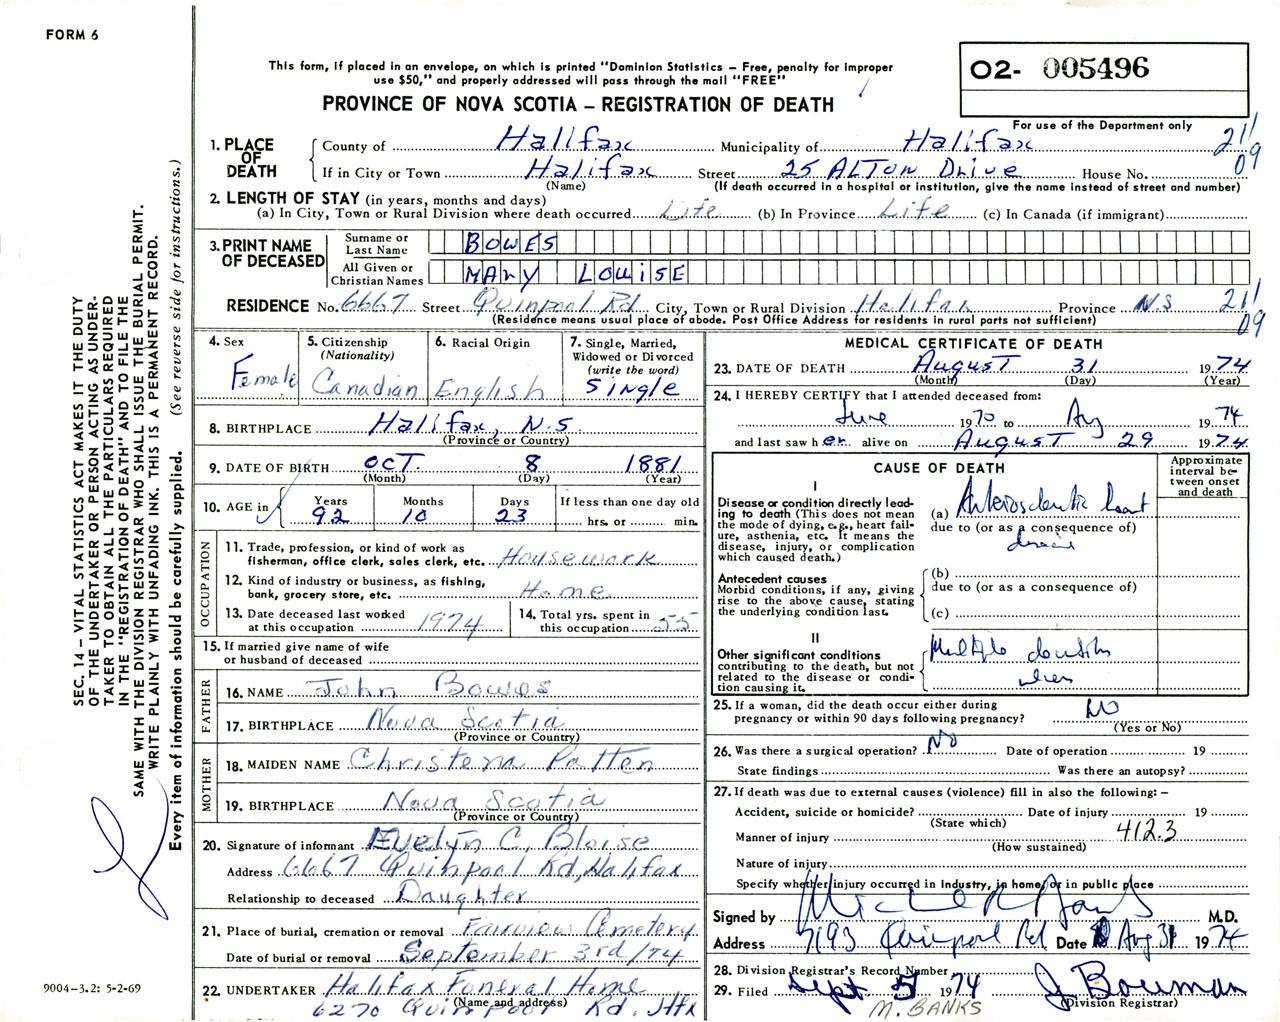 FORM 6
This form, if placed in an envelope, on which is printed "Dominion Statistics – Free, penalty for improper
use $50," and properly addressed will pass through the mail "FREE"
PROVINCE OF NOVA SCOTIA – REGISTRATION OF DEATH
O2- 005496
For use of the Department only
1. PLACE OF DEATH
County of Halifax Municipality of Halifax 211
If in City or Town Halifax Street 25 ALTON Drive House No. 09
(Name) (If death occurred in a hospital or institution, give the name instead of street and number)
2. LENGTH OF STAY (in years, months and days)
(a) In City, Town or Rural Division where death occurred Life (b) In Province Life (c) In Canada (if immigrant)
3. PRINT NAME OF DECEASED
Surname or Last Name BOWES
All Given or Christian Names MARY LOUISE
RESIDENCE No. 6667 Street Quinpool Rd City, Town or Rural Division Halifax Province N.S 211
(Residence means usual place of abode. Post Office Address for residents in rural parts not sufficient) 09
4. Sex Female
5. Citizenship (Nationality) Canadian
6. Racial Origin English
7. Single, Married, Widowed or Divorced (write the word) Single
8. BIRTHPLACE Halifax, N.S
(Province or Country)
9. DATE OF BIRTH OCT. 8 1881
(Month) (Day) (Year)
10. AGE in Years 92 Months 10 Days 23 If less than one day old hrs. or min.
OCCUPATION
11. Trade, profession, or kind of work as
fisherman, office clerk, sales clerk, etc. Housework
12. Kind of industry or business, as fishing,
bank, grocery store, etc. Home
13. Date deceased last worked at this occupation 1974
14. Total yrs. spent in this occupation 55
15. If married give name of wife
or husband of deceased
FATHER
16. NAME John Bowes
17. BIRTHPLACE Nova Scotia
(Province or Country)
MOTHER
18. MAIDEN NAME Christena Patten
19. BIRTHPLACE Nova Scotia
(Province or Country)
20. Signature of informant Evelyn C. Bloise
Address 6667 Quinpool Rd, Halifax
Relationship to deceased Daughter
21. Place of burial, cremation or removal Fairview Cemetery
Date of burial or removal September 3rd/74
22. UNDERTAKER Halifax Funeral Home
(Name and address)
6270 Quinpool Rd. Hfx
MEDICAL CERTIFICATE OF DEATH
23. DATE OF DEATH August 31 1974
(Month) (Day) (Year)
24. I HEREBY CERTIFY that I attended deceased from:
June 1970 to Aug 1974
and last saw her alive on August 29 1974
CAUSE OF DEATH
Approximate interval between onset and death
I
Disease or condition directly lead-
ing to death (This does not mean
the mode of dying, e.g., heart fail-
ure, asthenia, etc. It means the
disease, injury, or complication
which caused death.)
(a) heart
due to (or as a consequence of)
Antecedent causes
Morbid conditions, if any, giving
rise to the above cause, stating
the underlying condition last.
(b)
due to (or as a consequence of)
(c)
II
Other significant conditions
contributing to the death, but not
related to the disease or condi-
tion causing it.
Multiple
25. If a woman, did the death occur either during
pregnancy or within 90 days following pregnancy? NO
(Yes or No)
26. Was there a surgical operation? No Date of operation 19
State findings Was there an autopsy?
27. If death was due to external causes (violence) fill in also the following: –
Accident, suicide or homicide? Date of injury 19
(State which)
Manner of injury 412.3
(How sustained)
Nature of injury
Specify whether injury occurred in Industry, in home, or in public place
Signed by M.D.
Address 7193 Quinpool Rd Date Aug 31 1974
28. Division Registrar's Record Number
29. Filed Sept 5 1974 J Bowman
(Division Registrar)
M. BANKS
SEC. 14 – VITAL STATISTICS ACT MAKES IT THE DUTY
OF THE UNDERTAKER OR PERSON ACTING AS UNDER-
TAKER TO OBTAIN ALL THE PARTICULARS REQUIRED
IN THE "REGISTRATION OF DEATH" AND TO FILE THE
SAME WITH THE DIVISION REGISTRAR WHO SHALL ISSUE THE BURIAL PERMIT.
WRITE PLAINLY WITH UNFADING INK. THIS IS A PERMANENT RECORD.
Every item of information should be carefully supplied. (See reverse side for instructions.)
9004-3.2: 5-2-69